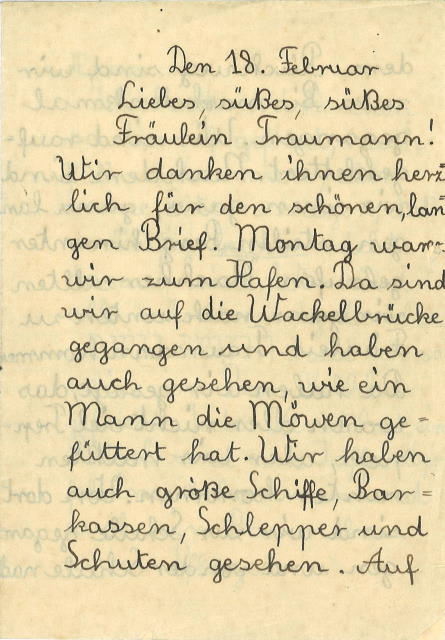 Den 18. Februar
Liebes, süßes, süßes
Fräulein Traumann!
Wir danken ihnen herz=
lich für den schönen, lan=
gen Brief. Montag war-
wir zum Hafen. Da sind
wir auf die Wackelbrücke
gegangen und haben
auch gesehen, wie ein
Mann die Möwen ge=
füttert hat. Wir haben
auch große Schiffe, Bar=
kassen, Schlepper und
Schuten gesehen. Auf